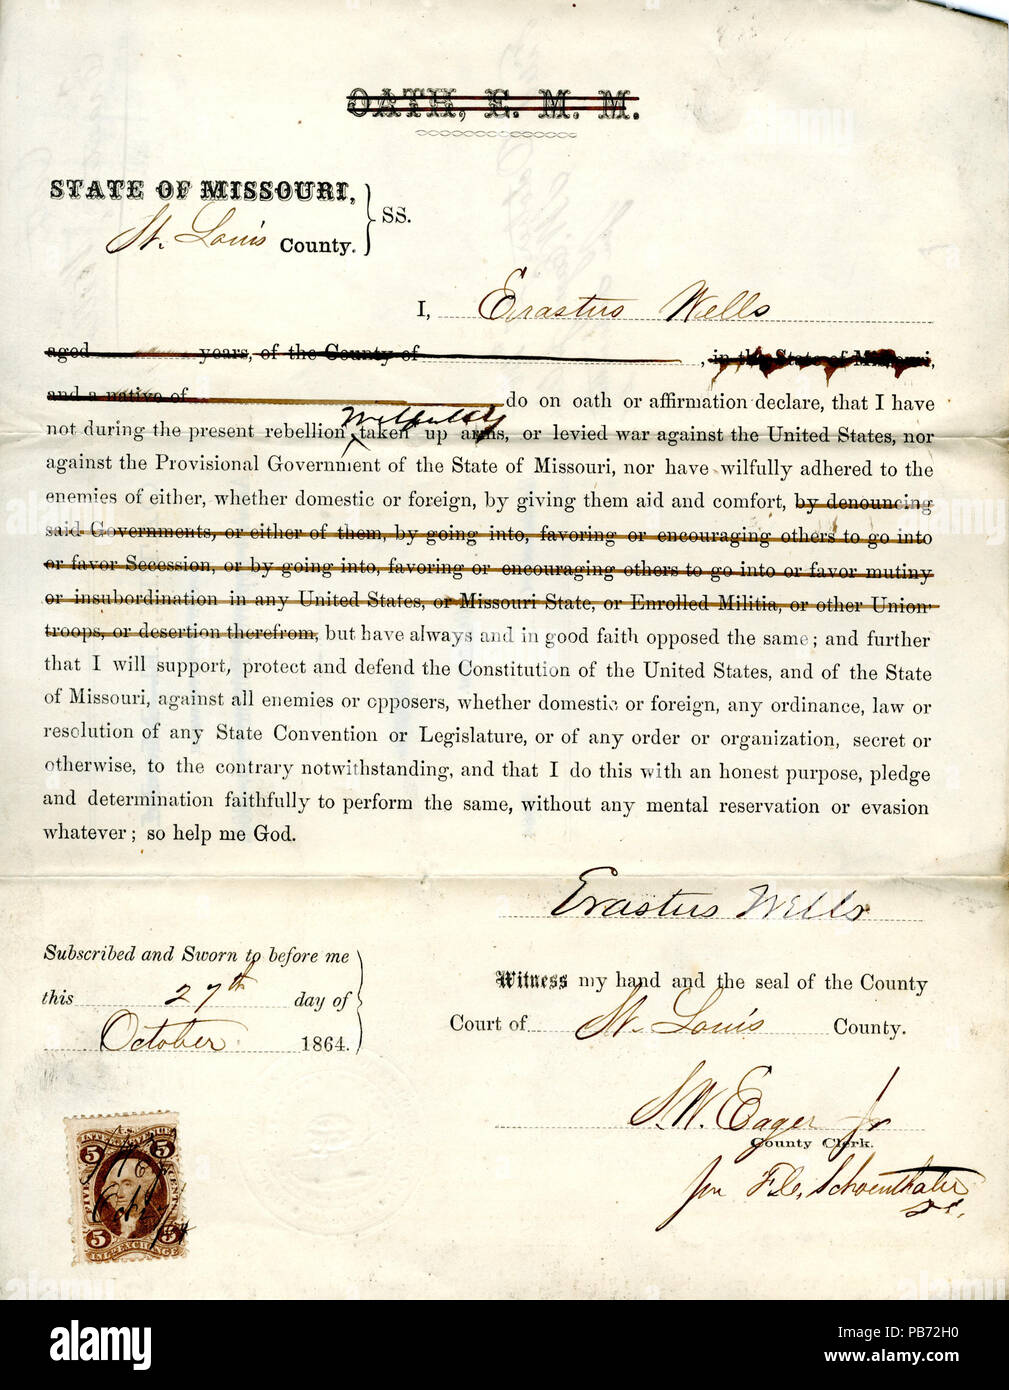 OATH, E. M. M.
STATE OF MISSOURI,
St. Louis County.
SS.
I, Erastus Wells
aged years, of the County of , in the State of Missouri,
and a native of do on oath or affirmation declare, that I have
Wilfully
not during the present rebellion taken up arms, or levied war against the United States, nor
against the Provisional Government of the State of Missouri, nor have wilfully adhered to the
enemies of either, whether domestic or foreign, by giving them aid and comfort, by denouncing
said Governments, or either of them, by going into, favoring or encouraging others to go into
or favor Secession, or by going into, favoring or encouraging others to go into or favor mutiny
or insubordination in any United States, or Missouri State, or Enrolled Militia, or other Union
troops, or desertion therefrom, but have always and in good faith opposed the same; and further
that I will support, protect and defend the Constitution of the United States, and of the State
of Missouri, against all enemies or opposers, whether domestic or foreign, any ordinance, law or
resolution of any State Convention or Legislature, or of any order or organization, secret or
otherwise, to the contrary notwithstanding, and that I do this with an honest purpose, pledge
and determination faithfully to perform the same, without any mental reservation or evasion
whatever; so help me God.
Erastus Wells
Subscribed and Sworn to before me
this 27th day of
October 1864.
Witness my hand and the seal of the County
Court of St. Louis County.
S. W. Eager Jr
County Clerk.
Schoenthaler
5 5
INTER. REVENUE
FIVE CENTS
5
INL. EXCHANGE
alamy
Image ID: PB72H0
www.alamy.com